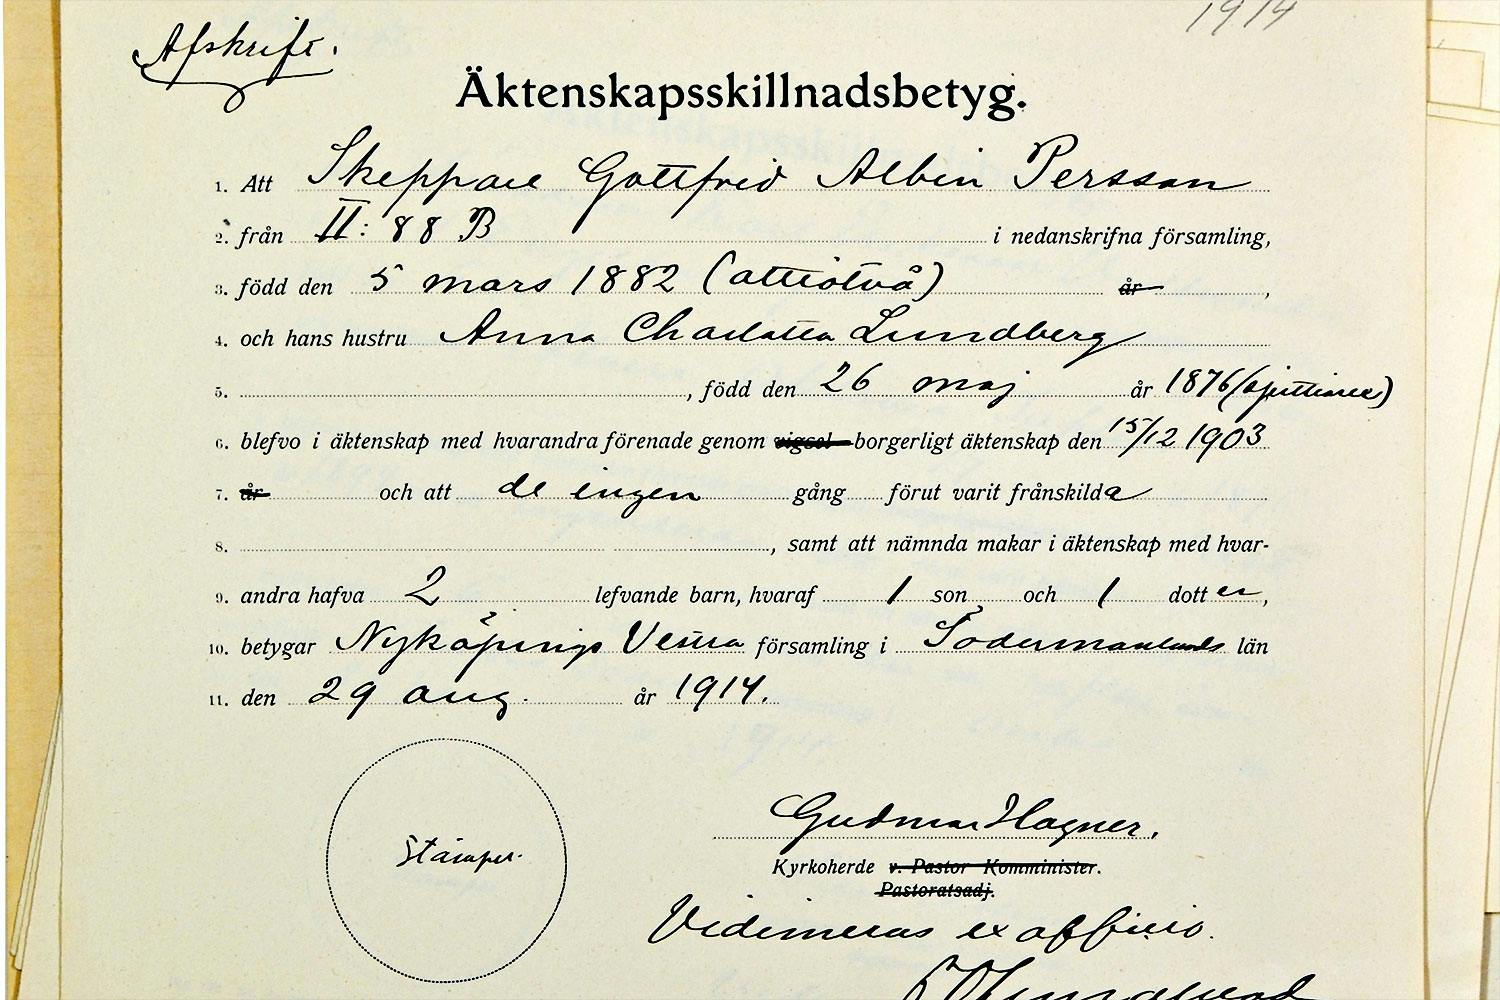 1914
Afskrift.
Äktenskapsskillnadsbetyg.
1. Att Skeppare Gottfrid Albin Persson
2. från II: 88 B i nedanskrifna församling,
3. född den 5 mars 1882 (åttiotvå) år,
4. och hans hustru Anna Charlotta Lundberg
5. , född den 26 maj år 1876 (sjuttiosex)
6. blefvo i äktenskap med hvarandra förenade genom vigsel borgerligt äktenskap den 15/12 1903
7. år och att de ingen gång förut varit frånskilda
8. , samt att nämnda makar i äktenskap med hvar-
9. andra hafva 2 lefvande barn, hvaraf 1 son och 1 dotter,
10. betygar Nyköpings Vestra församling i Södermanlands län
11. den 29 aug. år 1914.
Gudmar Hagner.
Stämpel.
Kyrkoherde v. Pastor Komminister.
Pastoratsadj.
Vidimeras ex officio.